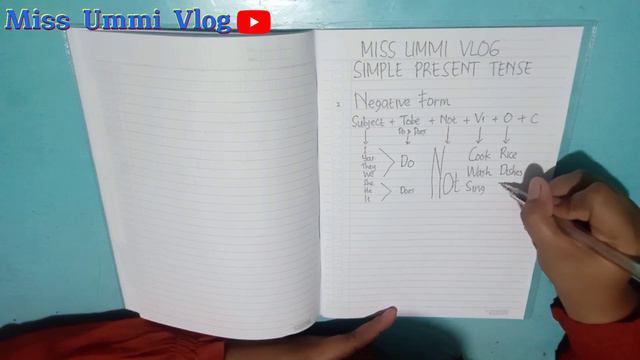 Miss Ummi Vlog
MISS UMMI VLOG
SIMPLE PRESENT TENSE
2. Negative Form
Subject + Tobe + Not + V1 + O + C
Do & Does
I
You
They
We
She
He
It
Do
Does
Not
Cook Rice
Wash Dishes
Sing